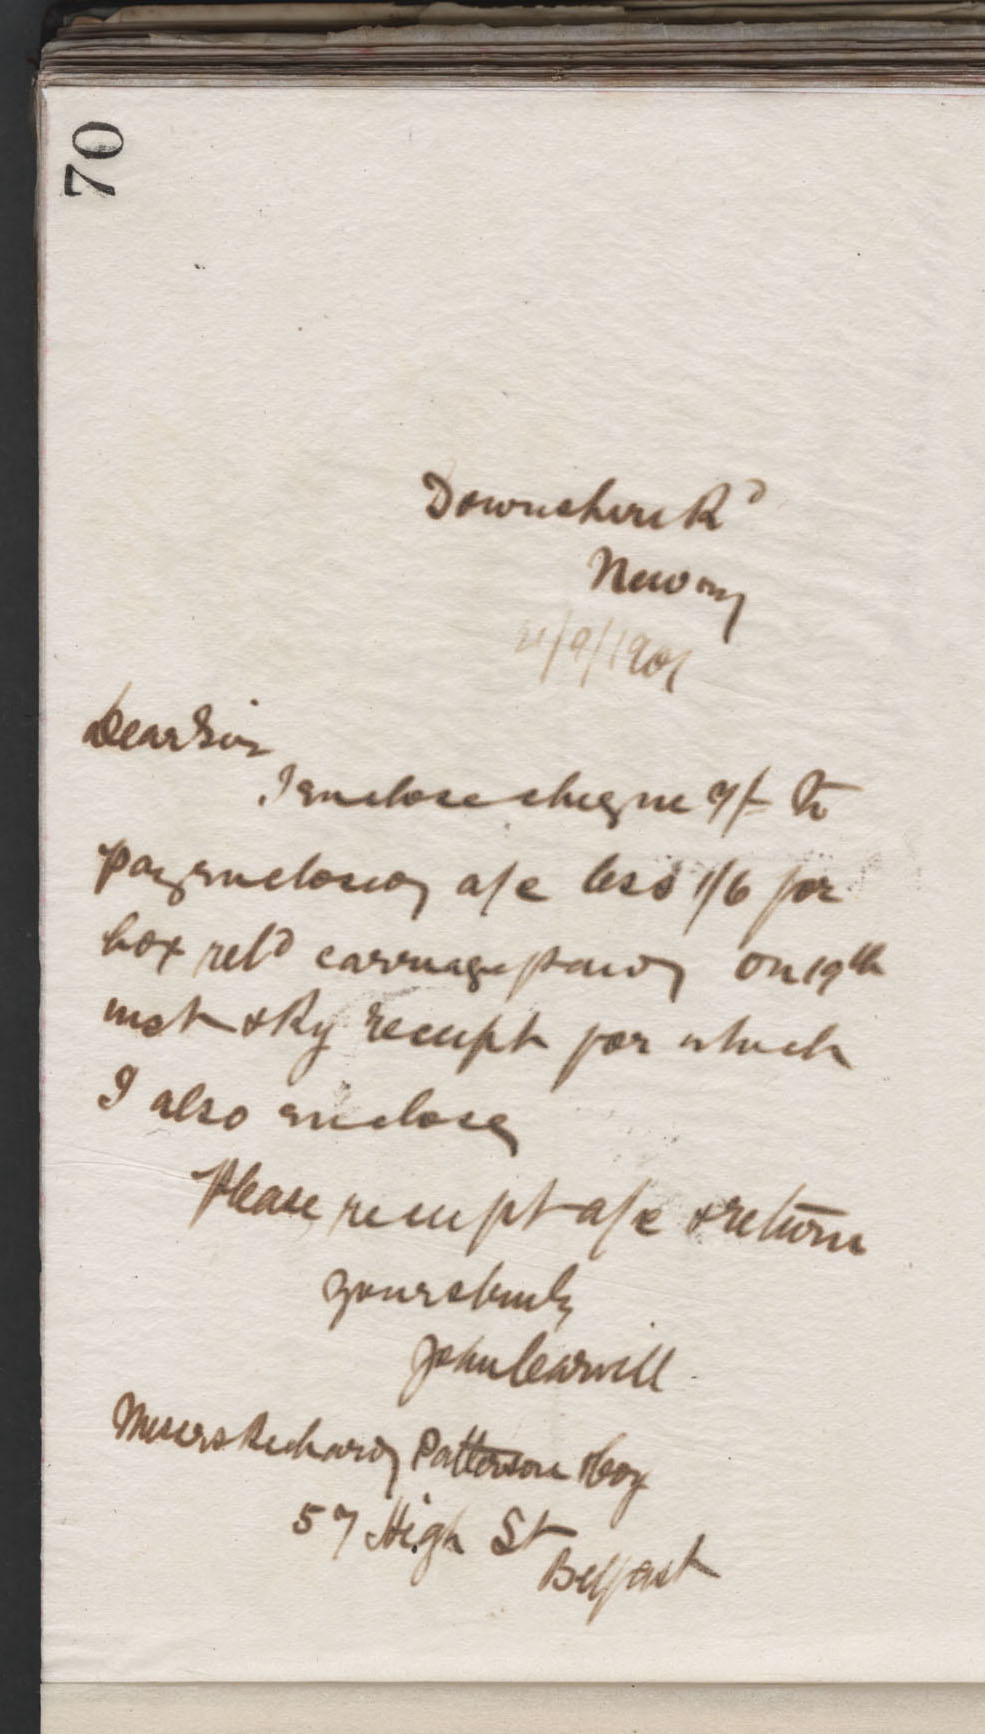 70
Downshire Rd
Newry
21/9/1901
Dear Sir
I enclose cheque 9/- to
pay enclosed a/c less 1/6 for
box retd carriage paid on 19th
inst & Ry receipt for which
I also enclose
Please receipt a/c & return
yours truly
John Carvill
Messrs Richard Patterson & Coy
57 High St
Belfast